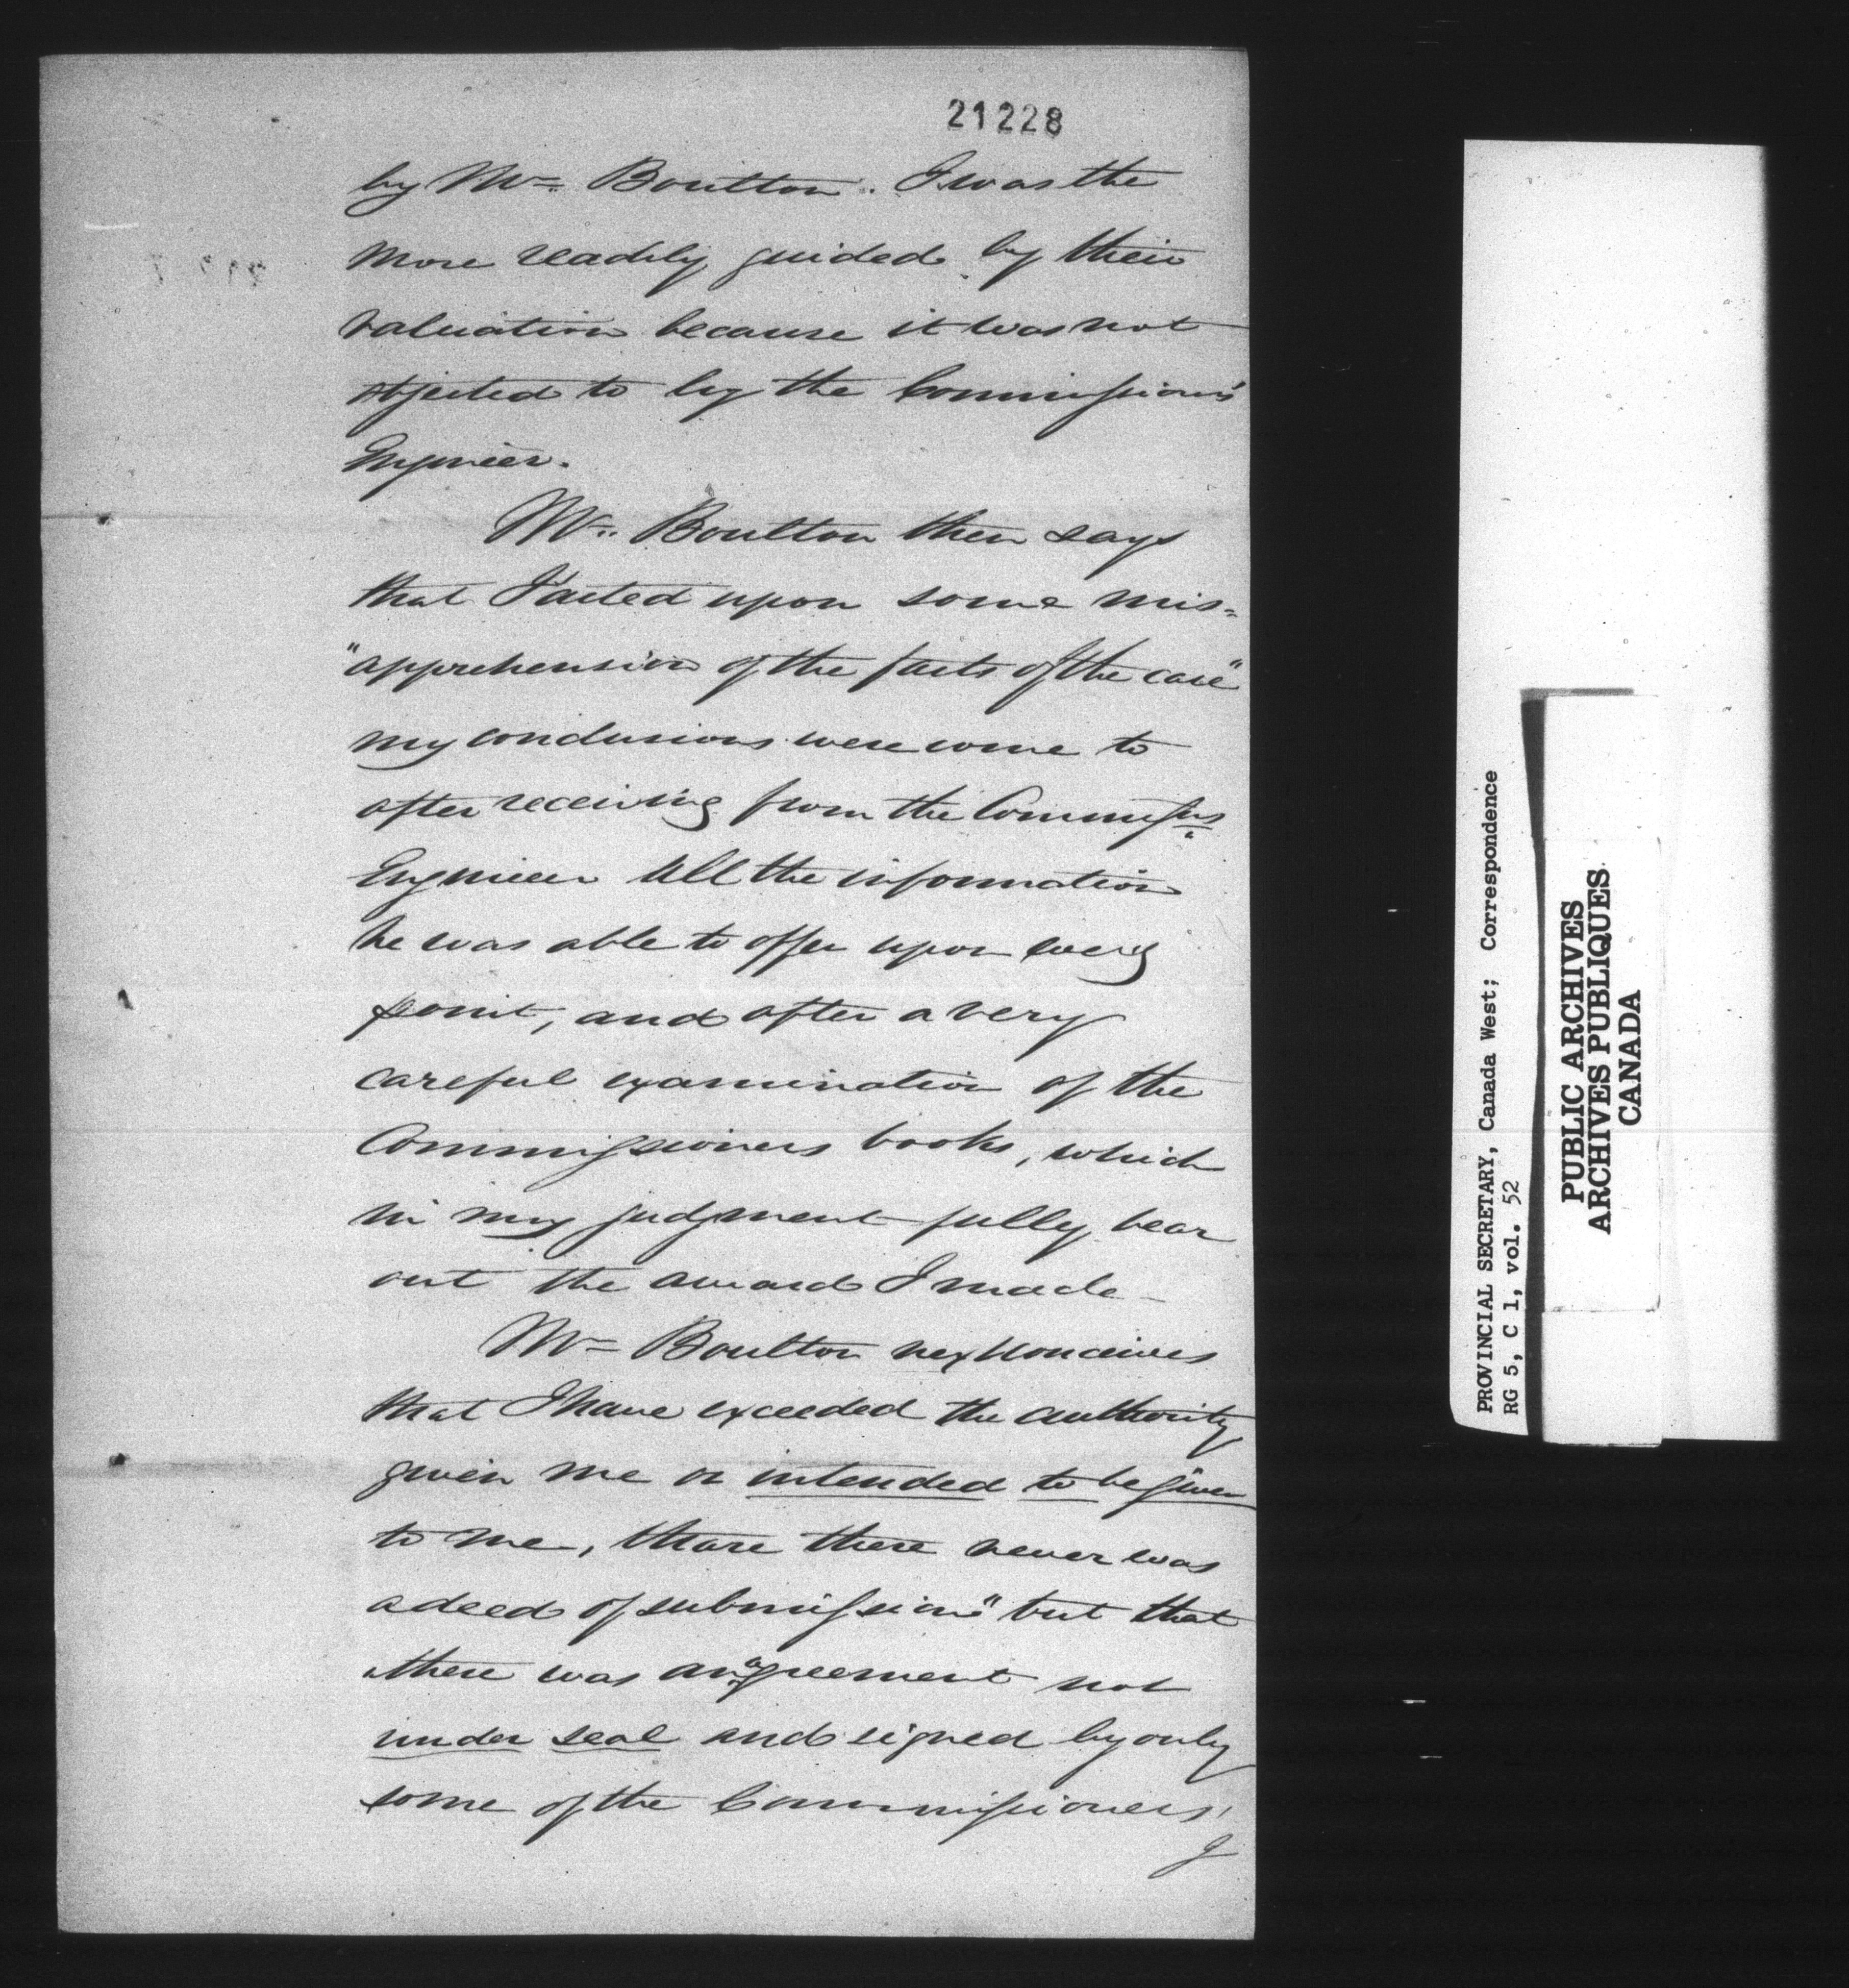 21228
by Mr. Boulton. I was the
more readily guided by their
valuation because it was not
objected to by the Commissions'
Engineer.
Mr. Boulton then says
that I acted upon some mis=
"apprehension of the facts of the case"
my conclusions were come to
after receiving from the Commissrs
Engineer all the information
he was able to offer upon every
point, and after a very
careful examination of the
Commissioners books, which
in my judgment fully bear
out the award I made –
Mr Boulton next conceives
that I have exceeded the authority
given me or intended to be given
to me, there never was
a deed of submission" but that
there was an agreement not
under seal and signed by only
some of the Commissioners,
PROVINCIAL SECRETARY, Canada West; Correspondence
RG 5, C 1, vol. 52
PUBLIC ARCHIVES
ARCHIVES PUBLIQUES
CANADA